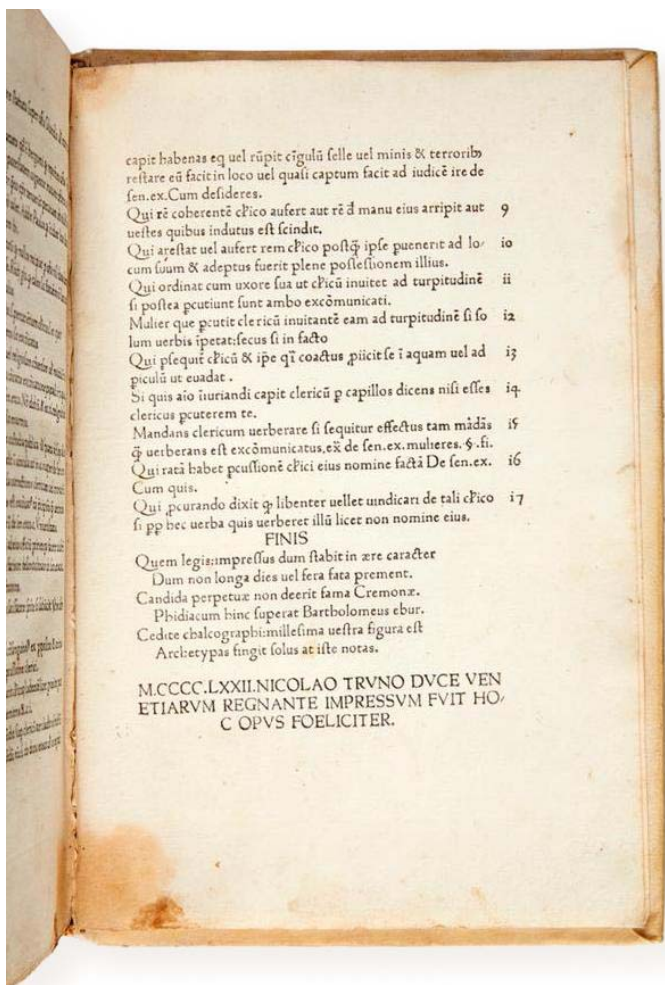 capit habenas eq uel rūpit cīgulū selle uel minis & terrorib₃
restare eū facit in loco uel quasi captum facit ad iudicē ire de
sen.ex.Cum desideres.
Qui rē coherentē cƚico aufert aut rē đ manu eius arripit aut 9
uestes quibus indutus est scindit.
Qui arestat uel aufert rem cƚico postq̄ ipse ꝑuenerit ad lo- io
cum suum & adeptus fuerit plene possessionem illius.
Qui ordinat cum uxore sua ut cƚicū inuitet ad turpitudinē ii
si postea ꝑcutiunt sunt ambo excōmunicati.
Mulier que ꝑcutit clericū inuitantē eam ad turpitudinē si so i2
lum uerbis īpetat:secus si in facto
Qui ꝑsequit̄ cƚicū & ip̄e qī coactus ꝓiicit se ī aquam uel ad i3
piculū ut euadat .
Si quis aīo īiuriandi capit clericū ꝑ capillos dicens nisi esses i4
clericus ꝑcuterem te.
Mandans clericum uerberare si sequitur effectus tam mādās i5
q̄ uerberans est excōmunicatus.ex̄ de sen.ex.mulieres.§.fi.
Qui ratā habet ꝑcussionē cƚici eius nomine factā De sen.ex. i6
Cum quis.
Qui ꝓcurando dixit ꝙ libenter uellet uindicari de tali cƚico i7
si ꝓꝑ hec uerba quis uerberet illū licet non nomine eius.
FINIS
Quem legis:impressus dum stabit in ære caracter
Dum non longa dies uel fera fata prement.
Candida perpetuæ non deerit fama Cremonæ.
Phidiacum hinc superat Bartholomeus ebur.
Cedite chalcographi:millesima uestra figura est
Archetypas fingit solus at iste notas.
M.CCCC.LXXII.NICOLAO TRVNO DVCE VEN
ETIARVM REGNANTE IMPRESSVM FVIT HO-
C OPVS FOELICITER.